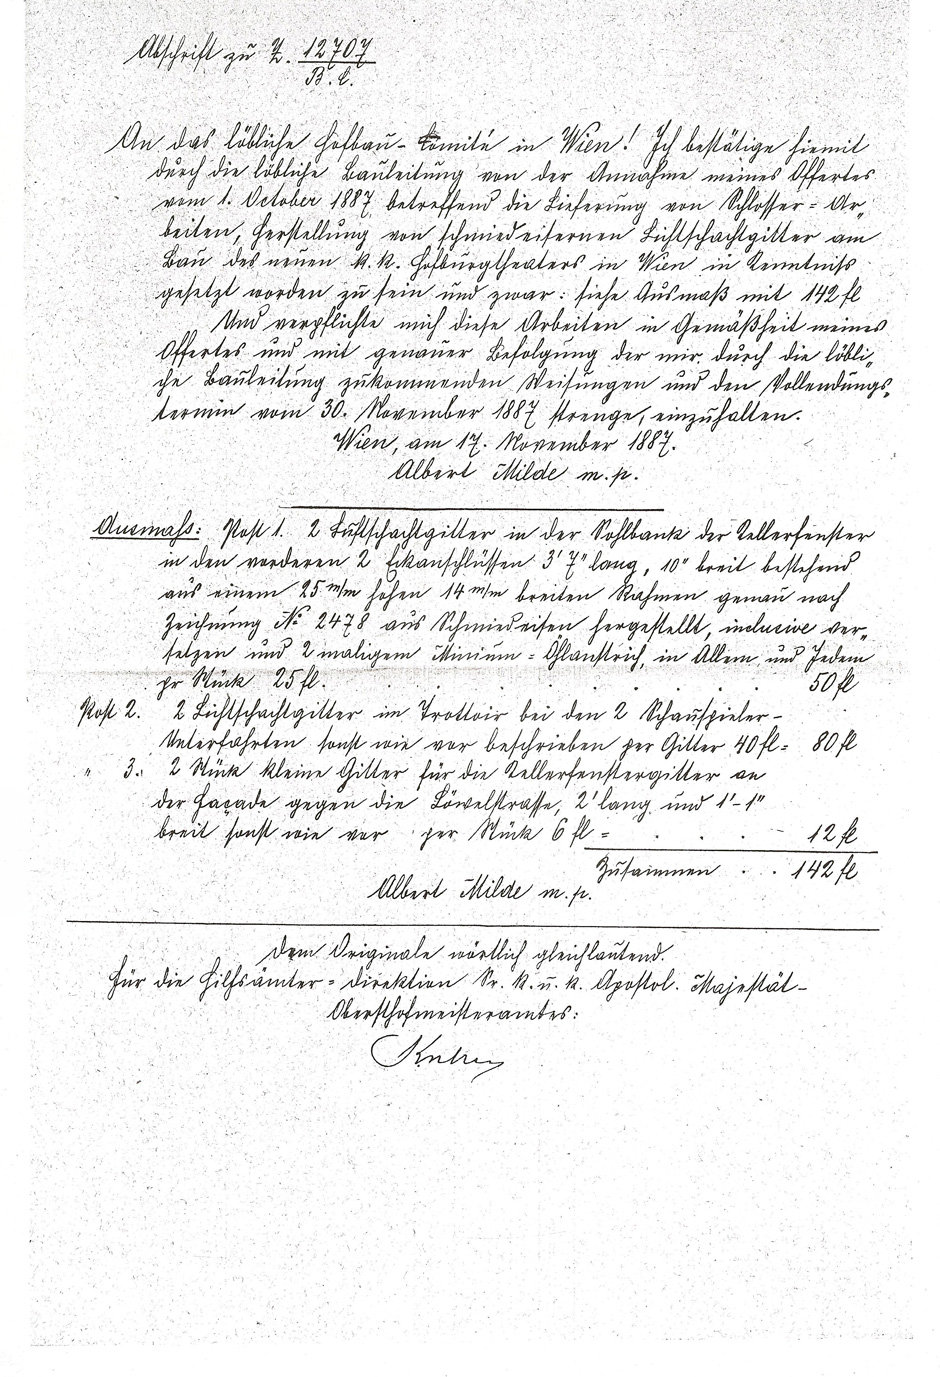 Abschrift zu Z. 12707
B. C.
An das löbliche Hofbau-Comité in Wien! Ich bestätige hiemit
durch die löbliche Bauleitung von der Annahme meines Offertes
vom 1. October 1887, betreffend die Lieferung von Schlosser=Ar„
beiten, Herstellung von schmiedeisernen Lichtschachtgitter am
Bau des neuen k. k. Hofburgtheaters in Wien in Kenntniß
gesetzt worden zu sein und zwar: siehe Ausmaß mit 142 fl
Und verpflichte mich diese Arbeiten in Gemäßheit meines
Offertes und mit genauer Befolgung der mir durch die löbli„
che Bauleitung zukommenden Weisungen und den Vollendungs„
termin vom 30. November 1887 strenge, einzuhalten.
Wien, am 17. November 1887.
Albert Milde m. p.
Ausmaß: Post 1. 2 Luftschachtgitter in der Sohlbank der Kellerfenster
in den vorderen 2 Eckanschlüssen 3' 7" lang, 10" breit bestehend
aus einem 25 m/m hohen 14 m/m breiten Rahmen genau nach
Zeichnung No 2478 aus Schmiedeisen hergestellt, inclusive ver„
setzen und 2 maligem Minium=Öhlanstrich, in Allem und Jedem
pr Stück 25 fl. . . . . . . . 50 fl
Post 2. 2 Lichtschachtgitter im Trottoir bei den 2 Schauspieler-
Unterfahrten sonst wie vor beschrieben per Gitter 40 fl = 80 fl
" 3. 2 Stück kleine Gitter für die Kellerfenstergitter an
der Façade gegen die Löwelstrasse, 2' lang und 1'-1"
breit sonst wie vor per Stück 6 fl = . . . . 12 fl
Zusammen . . 142 fl
Albert Milde m. p.
Dem Originale wörtlich gleichlautend.
Für die Hilfsämter=Direktion Sr. k. u. k. Apostol. Majestät-
Obersthofmeisteramtes: